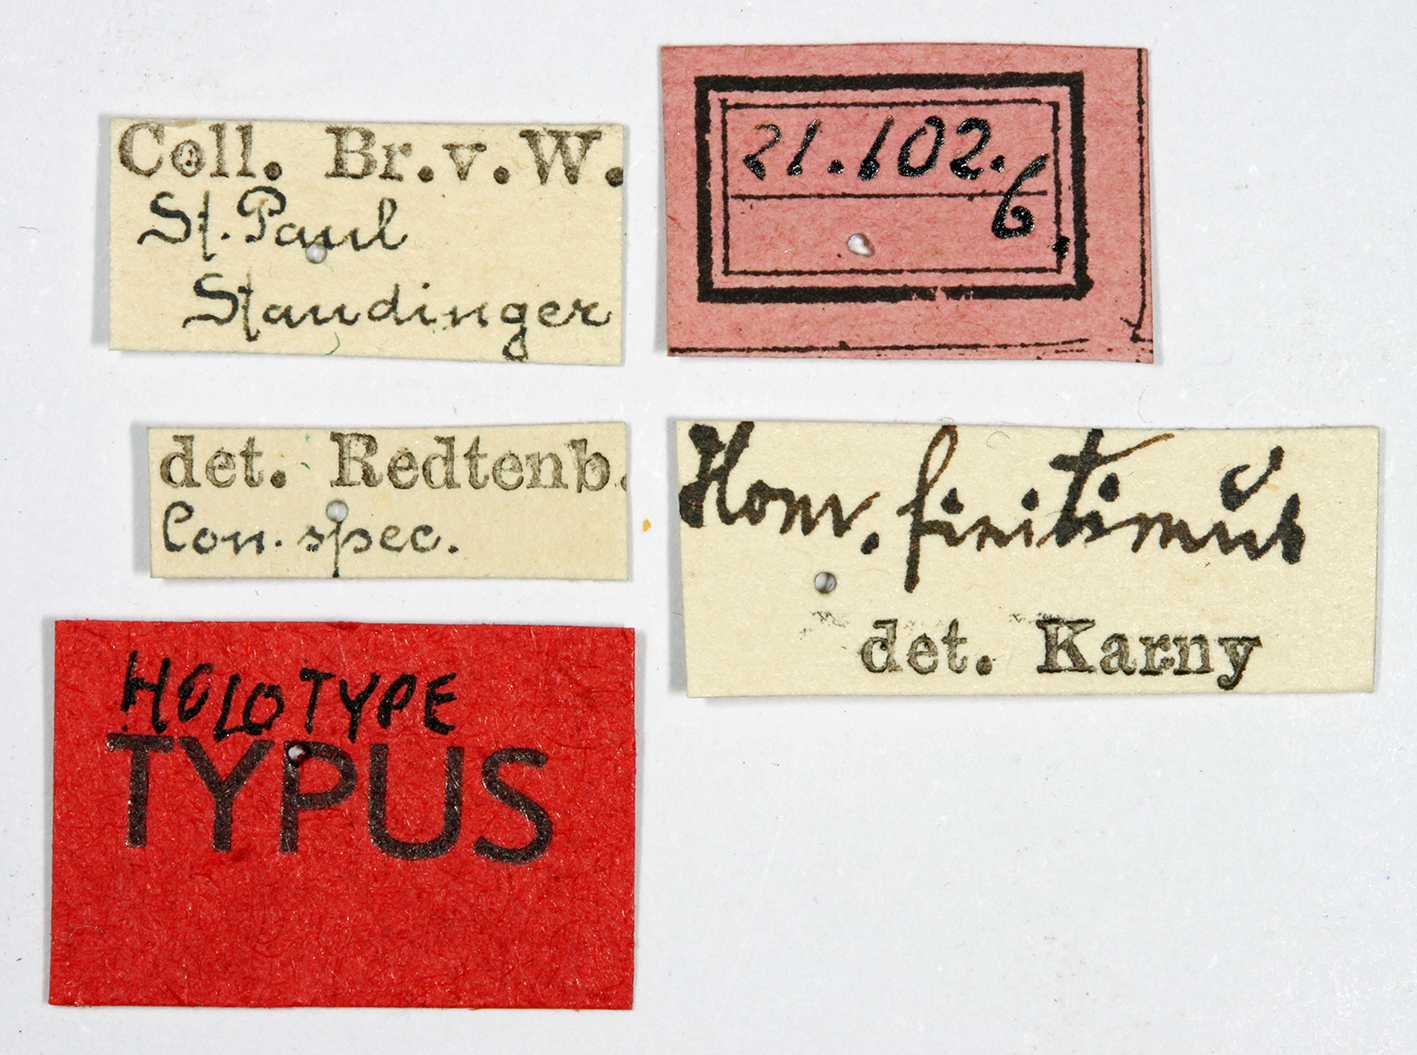 Coll. Br.v.W.
St. Paul
Staudinger
21.102.
6.
det. Redtenb.
Con. spec.
Hom. finitimus
det. Karny
HOLOTYPE
TYPUS